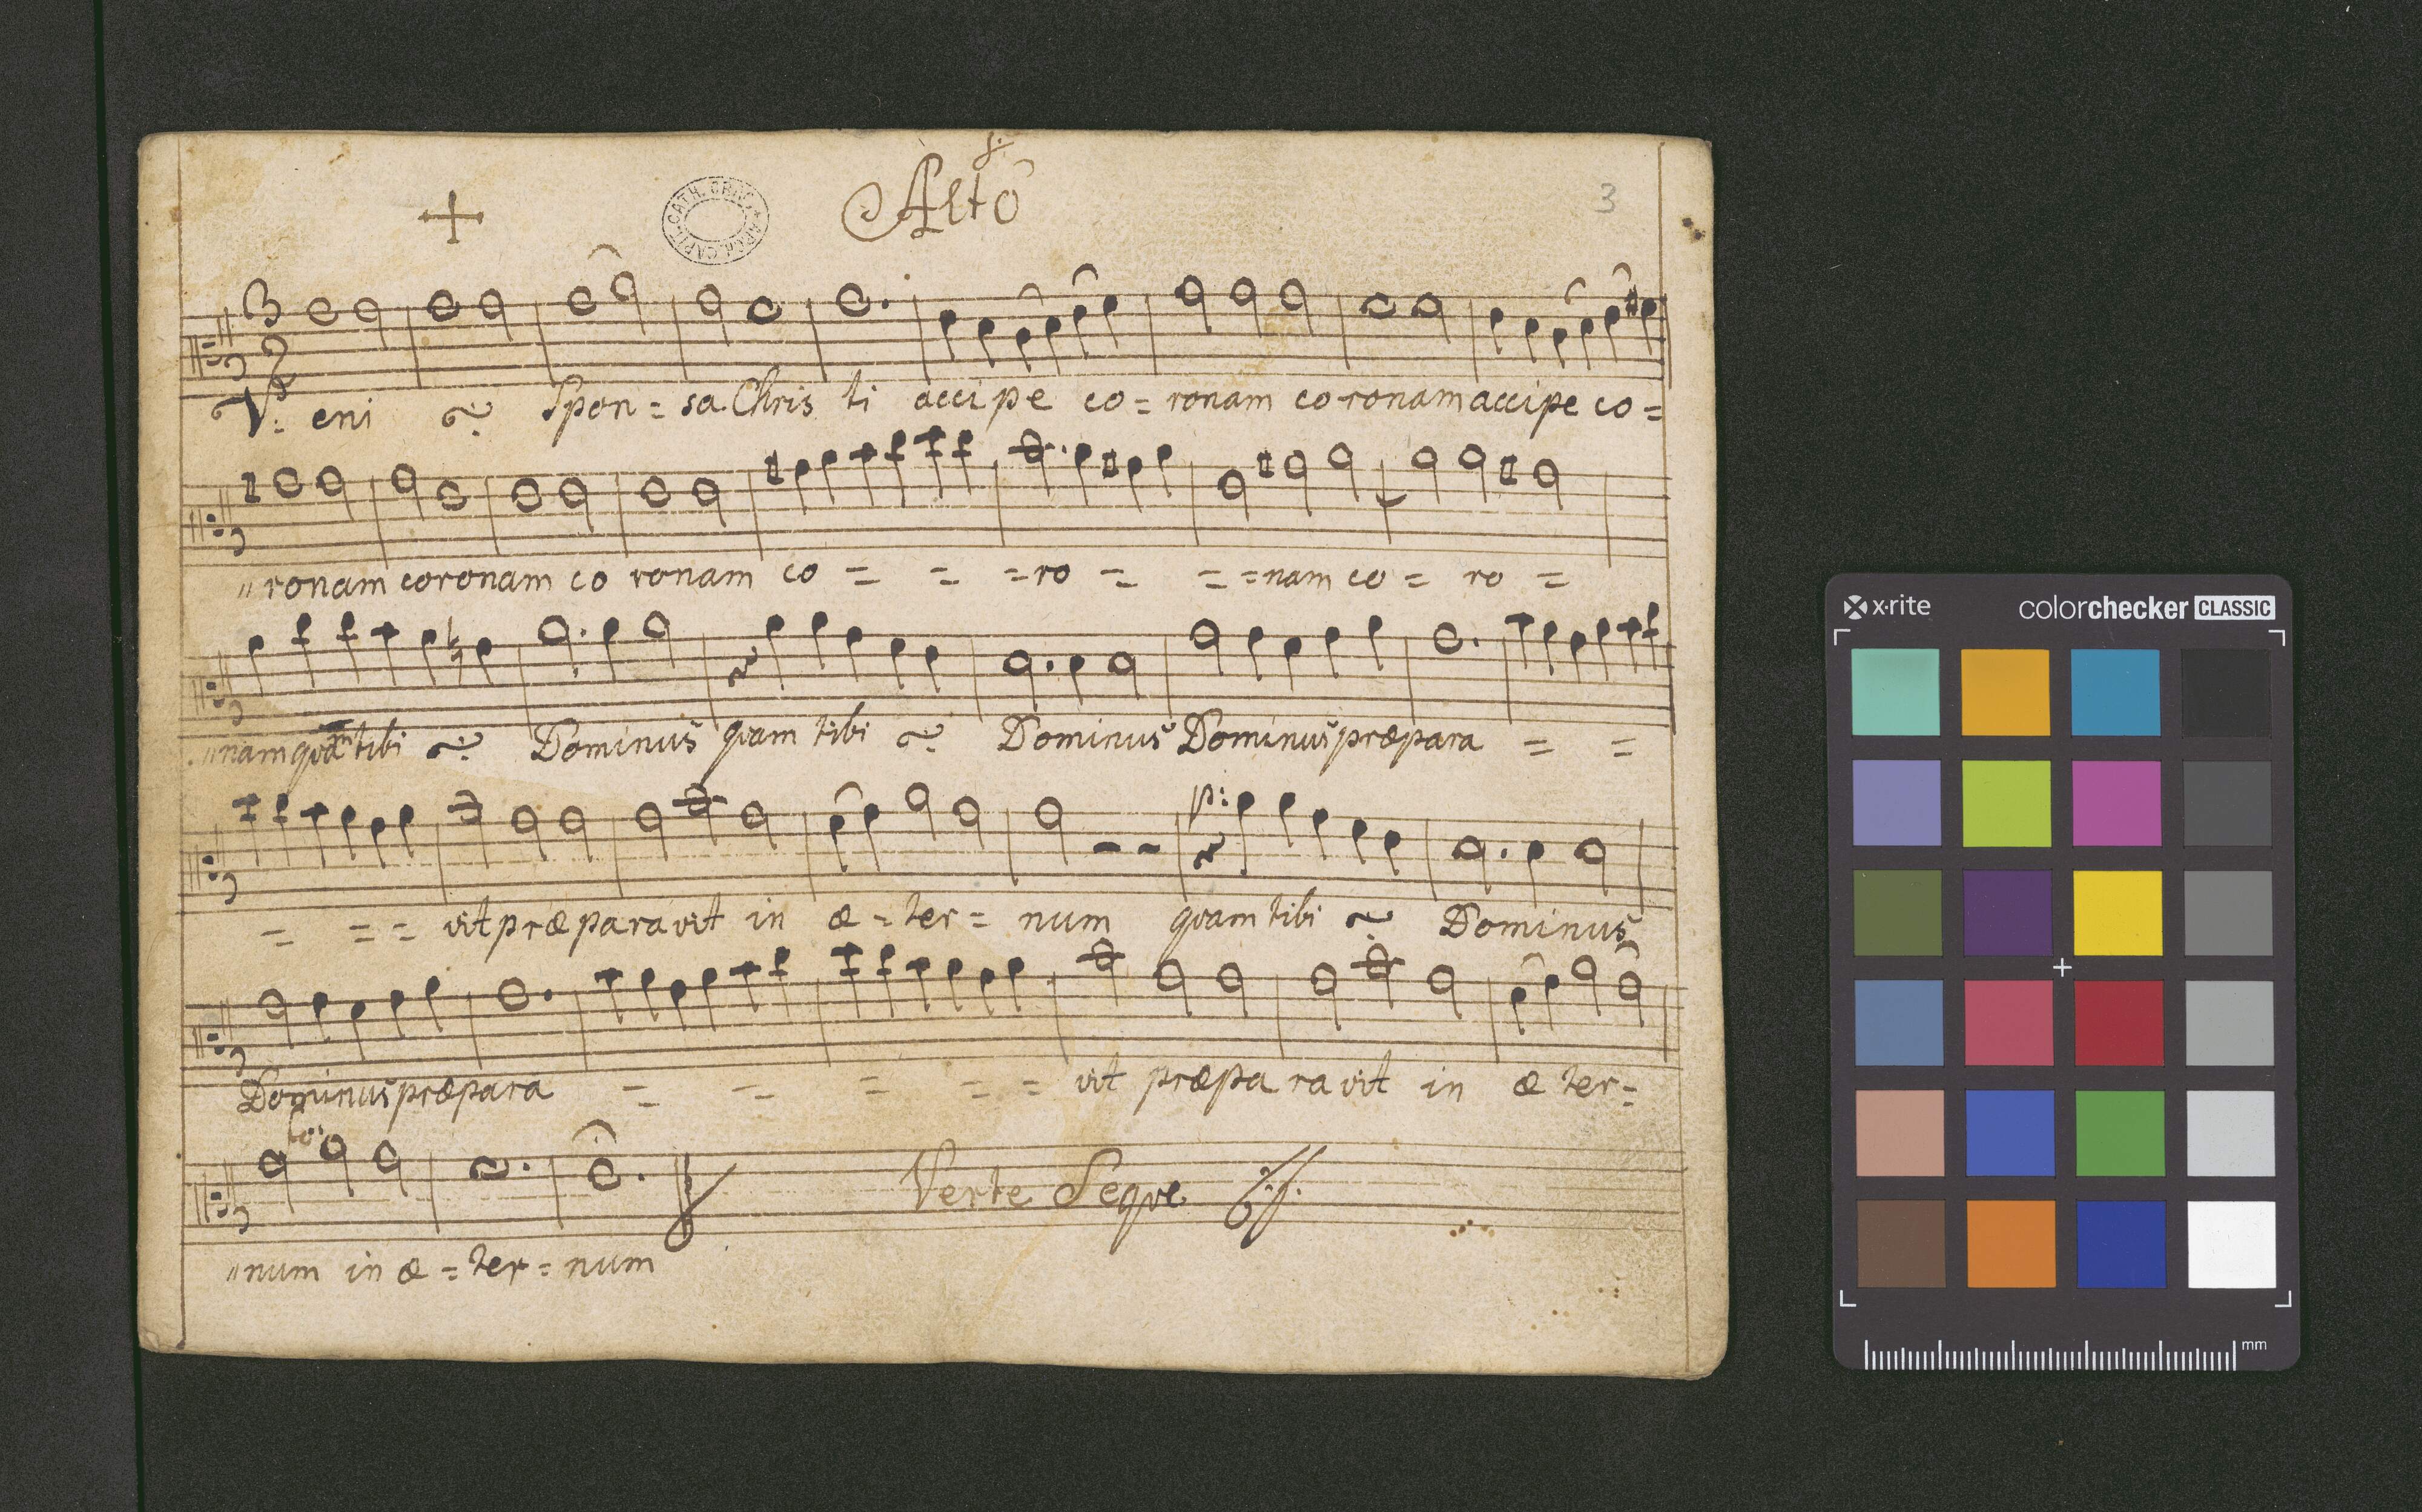 Alto
3
V: eni Spon = sa Chris ti accipe co = ronam co ronam accipe co =
" ronam coronam co ronam co = = = ro = = = nam co = ro =
" nam quam tibi Dominus quam tibi Dominus Dominus præpara = =
= = = vit præparavit in æ = ter = num p: quam tibi Dominus
Dominus præpara = = = = = vit præpa ra vit in æ ter =
fo:
" num in æ = ter = num
Verte Seque
x·rite
colorchecker CLASSIC
mm